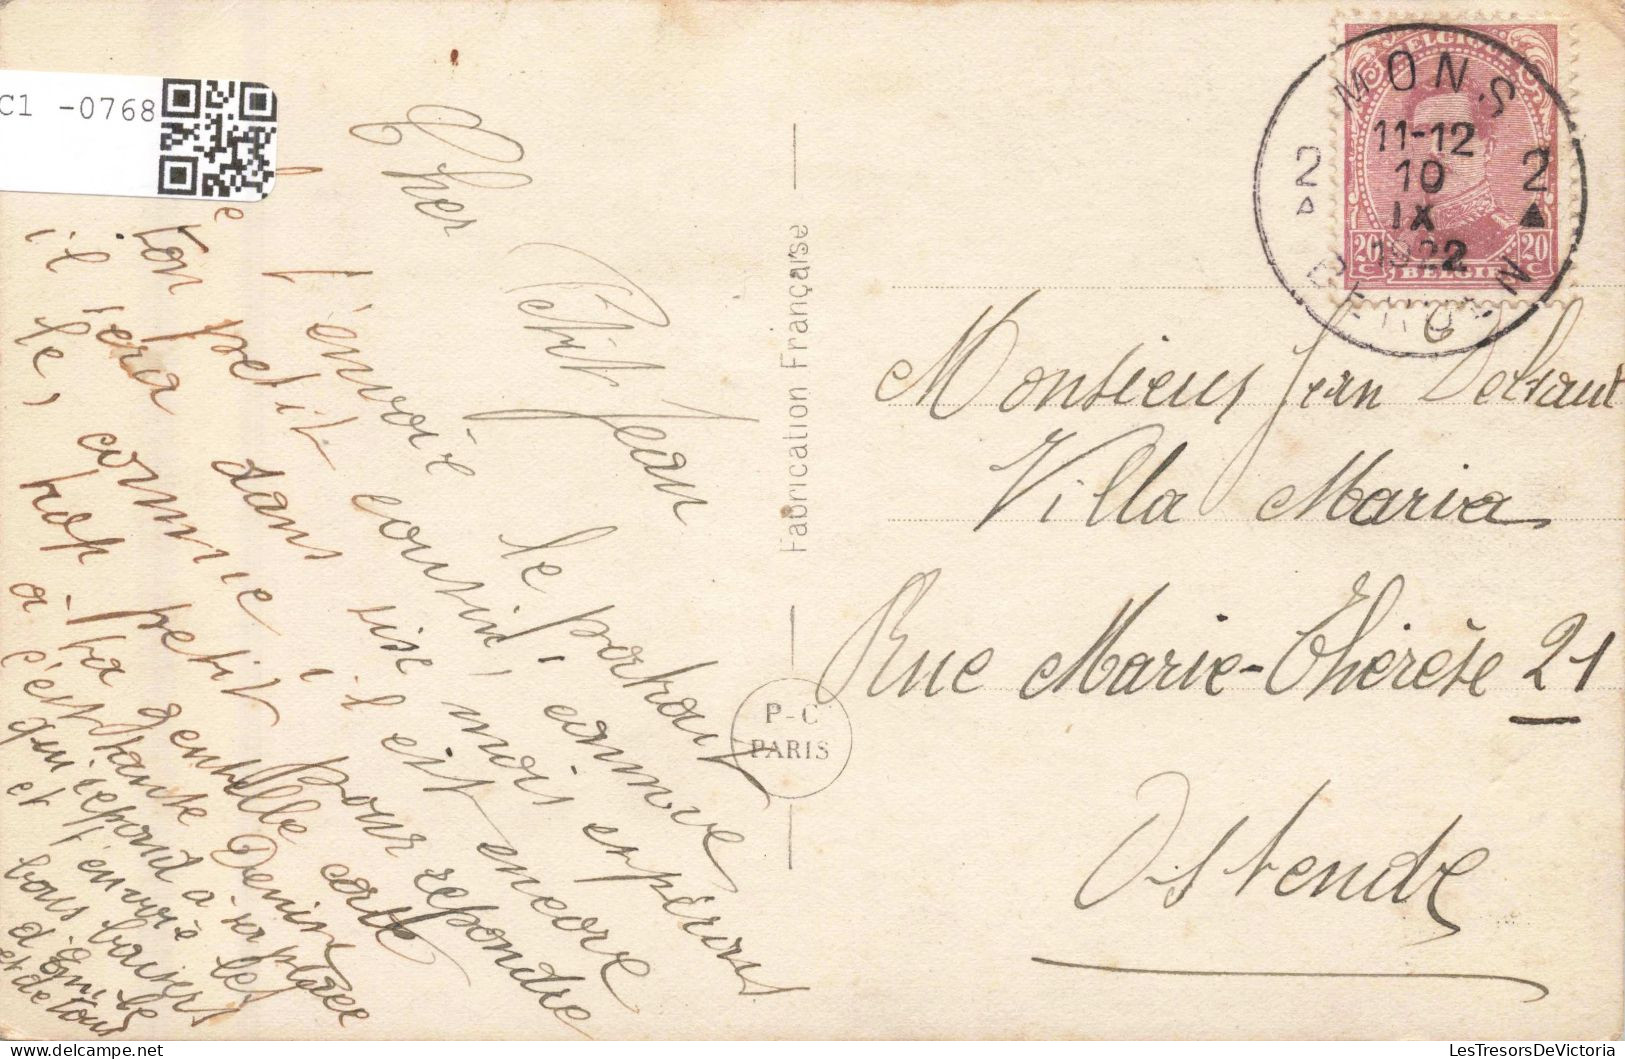 C1 -0768
Cher Petit Jean
Je t'envoie le portrait de
ton petit cousin, comme
il sera dans sise mois espérons
le, comme il est encore
trop petit pour repondre
à ta gentille carte
c'est tante Denin
qui repond à sa place
et t'envoie les
bons baisers
d'Emile
et de tous
Fabrication Française
P-C
PARIS
BELGIQUE
20 c BELGIE 20 c
MONS
11-12
10
IX
1922
2 2
BERGEN
Monsieur Jean Delsaut
Villa Maria
Rue Marie-Thérèse 21
Ostende
LesTresorsDeVictoria